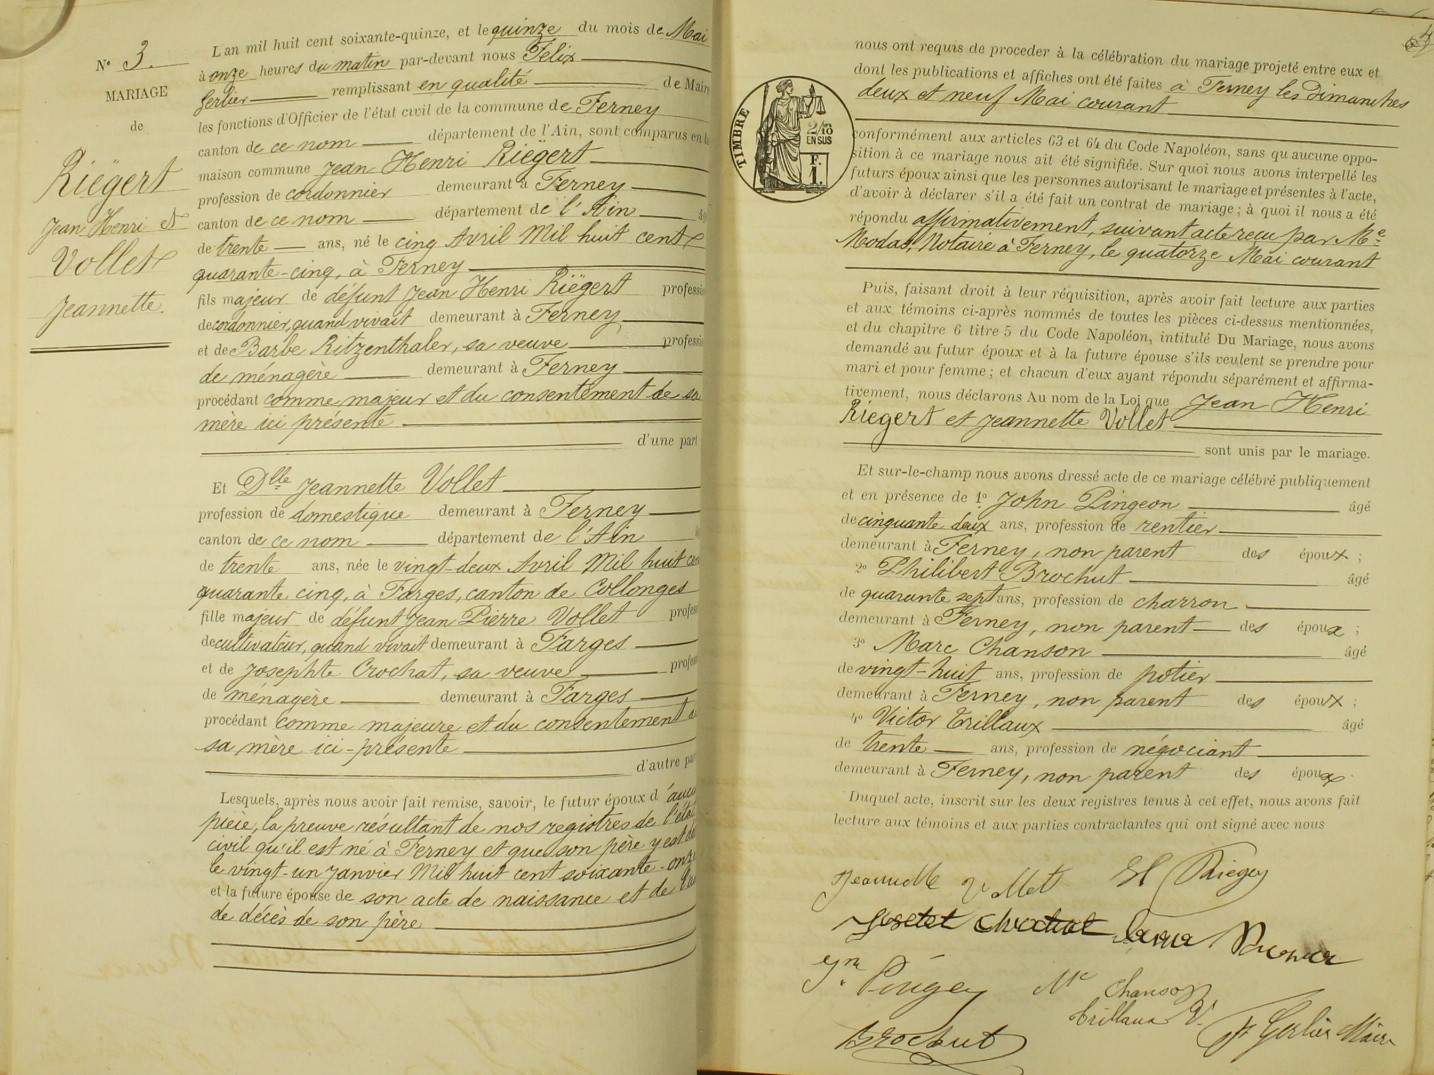 N° 3.
MARIAGE
de
Riëgert
Jean Henri et
Vollet
Jeannette.
L'an mil huit cent soixante-quinze, et le quinze du mois de Mai
à onze heures du matin par-devant nous Felix
Gerlier remplissant en qualité de Maire
les fonctions d'Officier de l'état civil de la commune de Ferney
canton de ce nom département de l'Ain, sont comparus en la
maison commune Jean Henri Riëgert
profession de cordonnier demeurant à Ferney
canton de ce nom département de l'Ain
de trente ans, né le cinq Avril Mil huit cent
quarante-cinq, à Ferney
fils majeur de défunt Jean Henri Riëgert profession
de cordonnier, quand vivait demeurant à Ferney
et de Barbe Ritzenthaler, sa veuve profession
de ménagère demeurant à Ferney
procédant comme majeur et du consentement de sa
mère ici présente
d'une part
Et Dlle Jeannette Vollet
profession de domestique demeurant à Ferney
canton de ce nom département de l'Ain
de trente ans, née le vingt-deux Avril Mil huit cent
quarante cinq, à Farges, canton de Collonges
fille majeur de défunt Jean Pierre Vollet profess
de cultivateur, quand vivait demeurant à Farges
et de Josephte Crochat, sa veuve profess
de ménagère demeurant à Farges
procédant comme majeure et du consentement
sa mère ici-présente
d'autre par
Lesquels, après nous avoir fait remise, savoir, le futur époux d'aucu
pièce, la preuve résultant de nos registres de l'état
civil qu'il est né à Ferney et que son père y est dé
le vingt-un Janvier Mil huit cent soixante-onze
et la future épouse de son acte de naissance et de l'ac
de décès de son père
nous ont requis de proceder à la célébration du mariage projeté entre eux et
dont les publications et affiches ont été faites à Ferney les Dimanches
deux et neuf Mai courant
TIMBRE
2/10
EN SUS
F.
1.
conformément aux articles 63 et 64 du Code Napoléon, sans qu'aucune oppo-
sition à ce mariage nous ait été signifiée. Sur quoi nous avons interpellé les
futurs époux ainsi que les personnes autorisant le mariage et présentes à l'acte,
d'avoir à déclarer s'il a été fait un contrat de mariage ; à quoi il nous a été
répondu affirmativement, suivant acte reçu par Me
Modas, Notaire à Ferney, le quatorze Mai courant
Puis, faisant droit à leur réquisition, après avoir fait lecture aux parties
et aux témoins ci-après nommés de toutes les pièces ci-dessus mentionnées,
et du chapitre 6 titre 5 du Code Napoléon, intitulé Du Mariage, nous avons
demandé au futur époux et à la future épouse s'ils veulent se prendre pour
mari et pour femme ; et chacun d'eux ayant répondu séparément et affirma-
tivement, nous déclarons Au nom de la Loi que Jean Henri
Riëgert et Jeannette Vollet
sont unis par le mariage.
Et sur-le-champ nous avons dressé acte de ce mariage célébré publiquement
et en présence de 1° John Pingeon âgé
de cinquante deux ans, profession de rentier
demeurant à Ferney, non parent des époux ;
2° Philibert Brochut âgé
de quarante sept ans, profession de charron
demeurant à Ferney, non parent des époux ;
3° Marc Chanson âgé
de vingt-huit ans, profession de potier
demeurant à Ferney, non parent des époux ;
4° Victor Trillaux âgé
de trente ans, profession de négociant
demeurant à Ferney, non parent des époux.
Duquel acte, inscrit sur les deux registres tenus à cet effet, nous avons fait
lecture aux témoins et aux parties contractantes qui ont signé avec nous
Jeannette Vollet H Riegert
Chanson
Trillaux V.
Brochut
F. Gerlier Maire